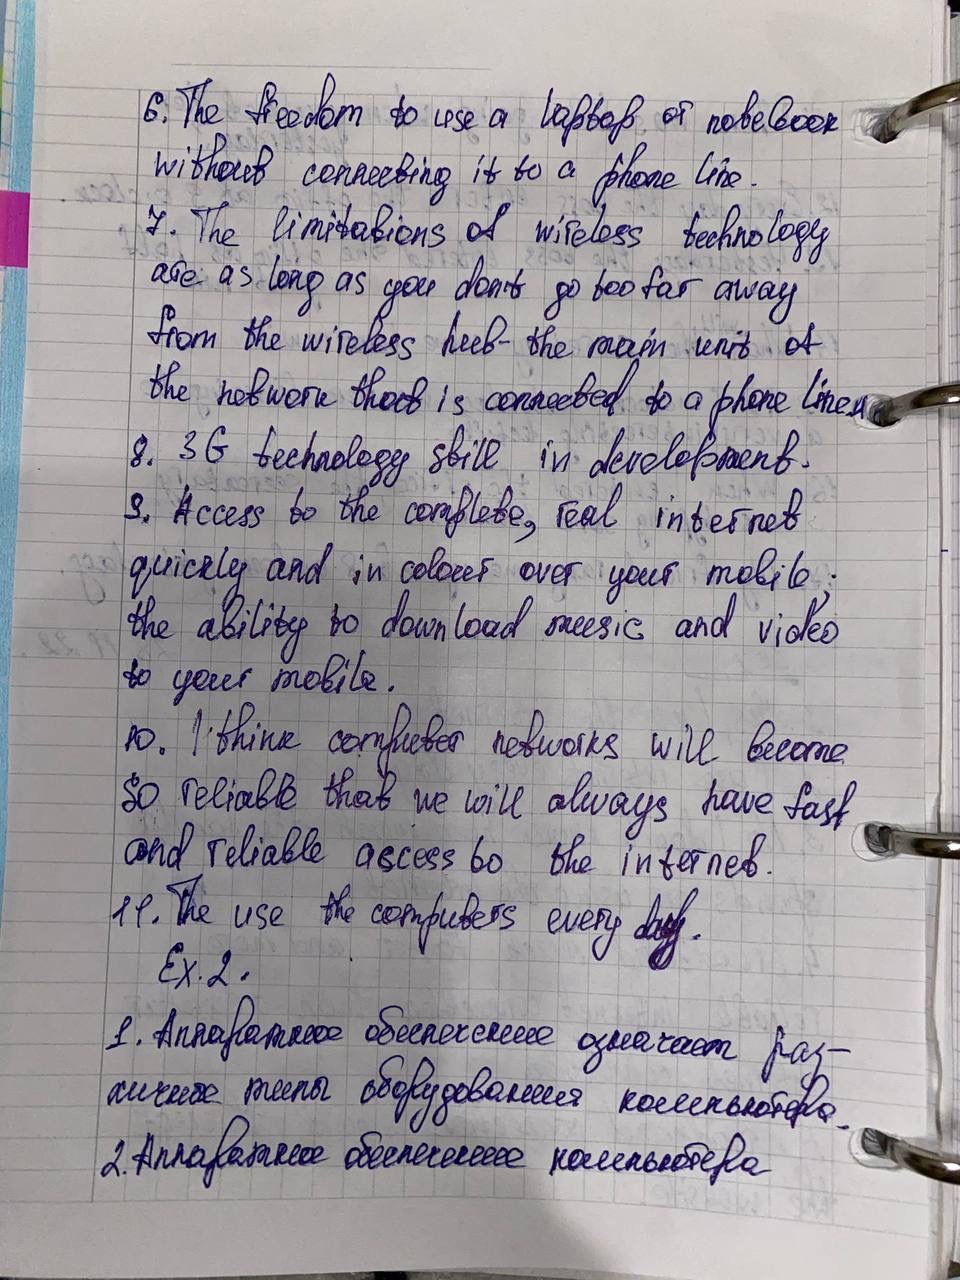 6. The freedom to use a laptop or notebook
without connecting it to a phone line.
7. The limitations of wireless technology
are as long as you don't go too far away
from the wireless hub - the main unit of
the network that is connected to a phone line.
8. 3G technology still in development.
9. Access to the complete, real internet
quickly and in colour over your mobile;
the ability to download music and video
to your mobile.
10. I think computer networks will become
so reliable that we will always have fast
and reliable access to the internet.
11. The use the computers every day.
Ex. 2.
1. Аппаратное обеспечение означает раз-
личные типы оборудования компьютера.
2. Аппаратное обеспечение компьютера